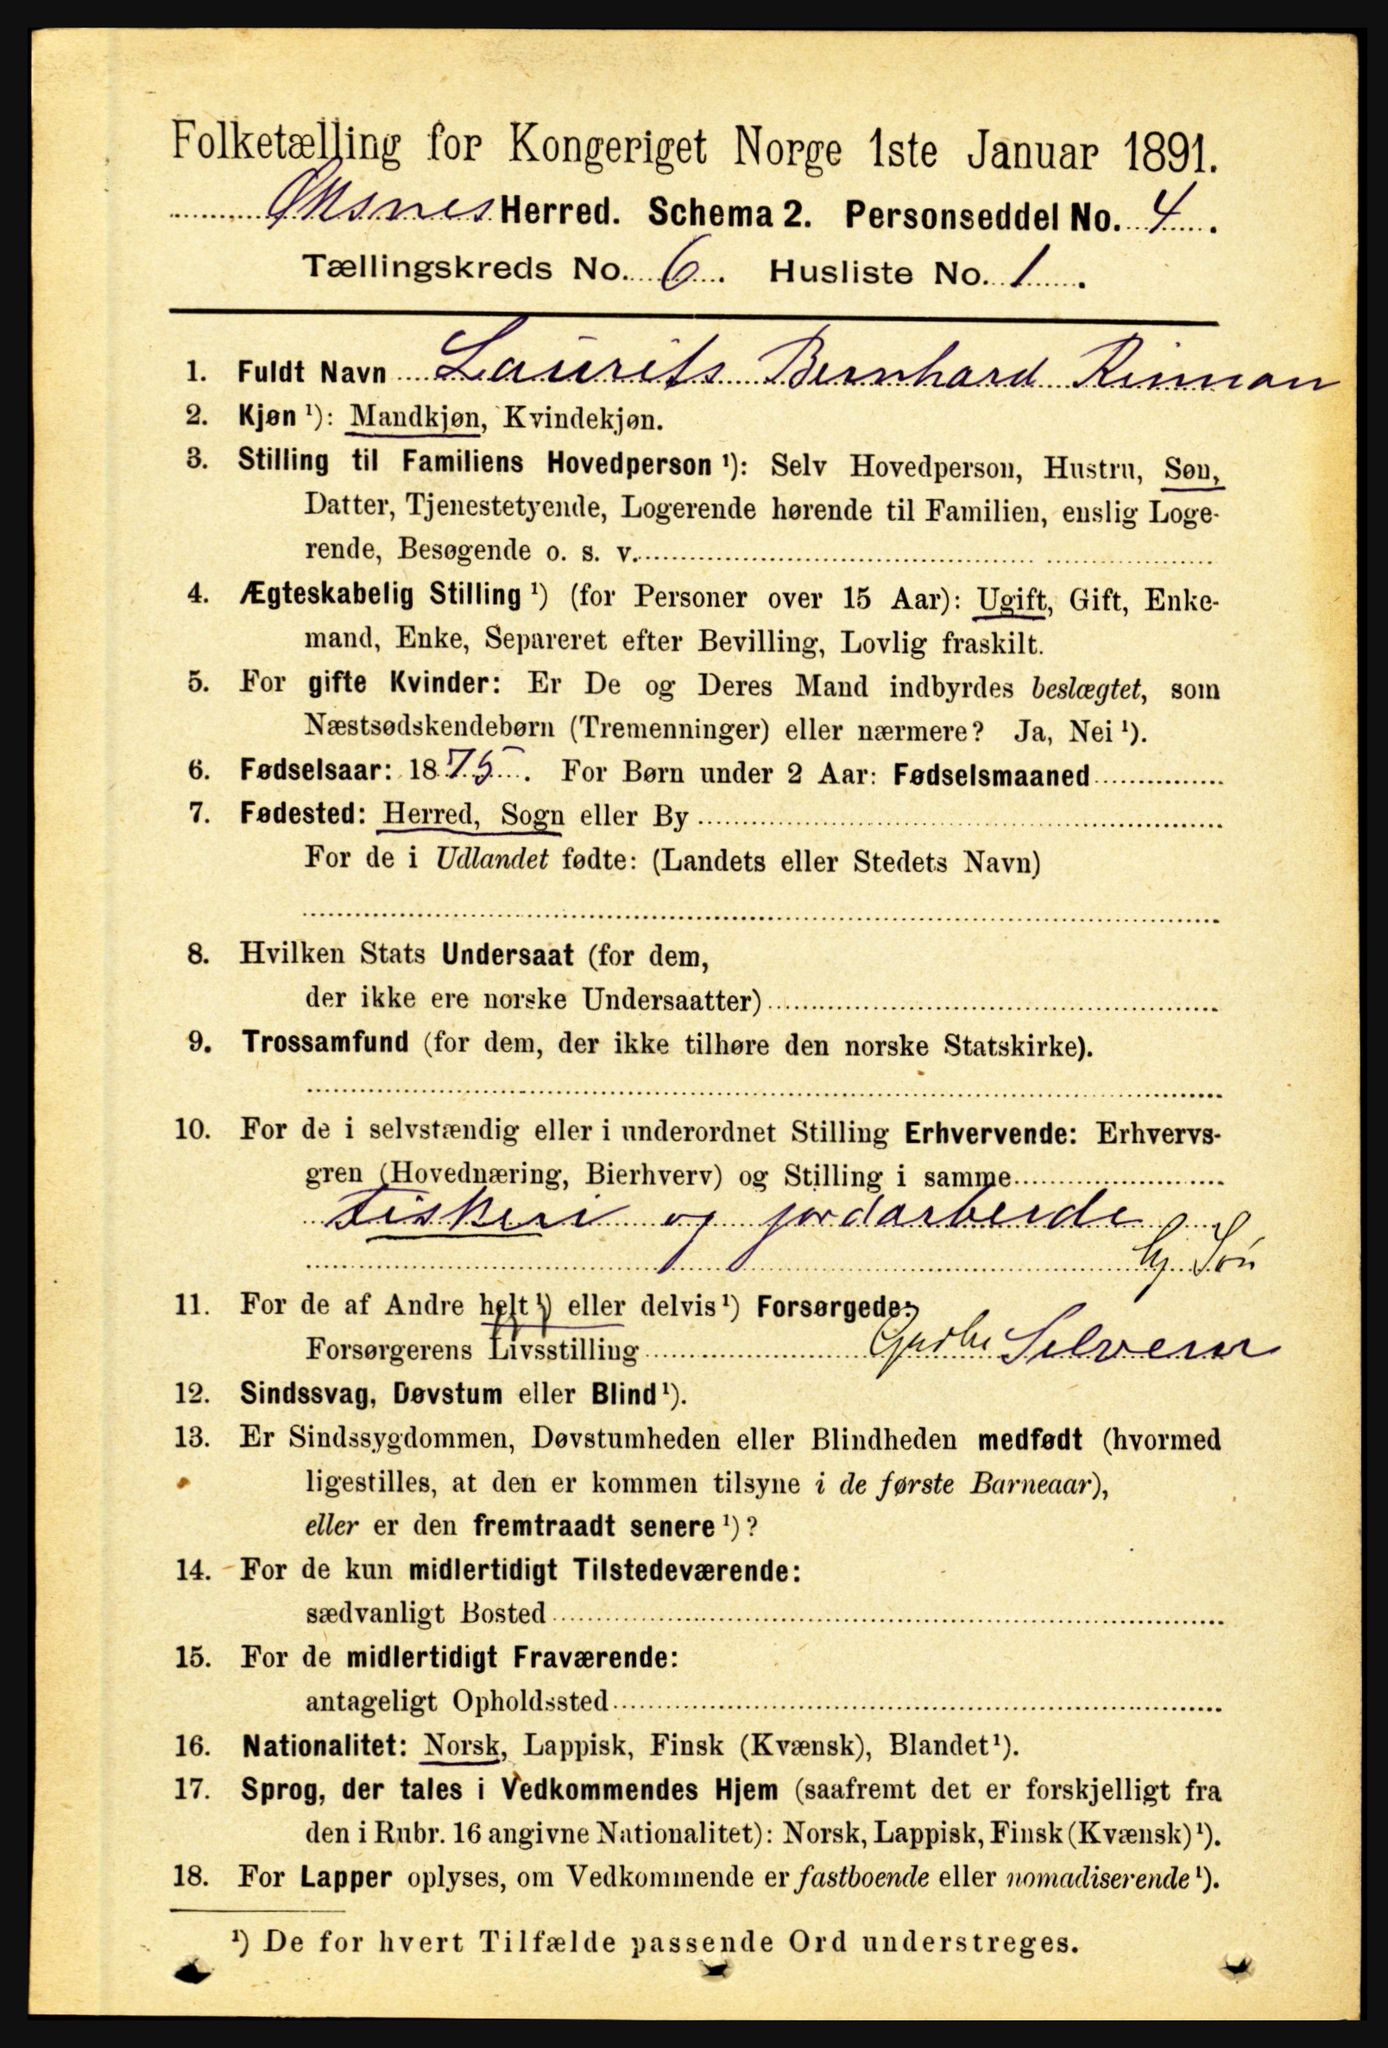 Folketælling for Kongeriget Norge 1ste Januar 1891.
Øksnes Herred. Schema 2. Personseddel No. 4.
Tællingskreds No. 6. Husliste No. 1.
1. Fuldt Navn Laurits Bernhard Rinman
2. Kjøn ¹): Mandkjøn, Kvindekjøn.
3. Stilling til Familiens Hovedperson ¹): Selv Hovedperson, Hustru, Søn,
Datter, Tjenestetyende, Logerende hørende til Familien, enslig Loge-
rende, Besøgende o. s. v.
4. Ægteskabelig Stilling ¹) (for Personer over 15 Aar): Ugift, Gift, Enke-
mand, Enke, Separeret efter Bevilling, Lovlig fraskilt.
5. For gifte Kvinder: Er De og Deres Mand indbyrdes beslægtet, som
Næstsødskendebørn (Tremenninger) eller nærmere? Ja, Nei ¹).
6. Fødselsaar: 1875. For Børn under 2 Aar: Fødselsmaaned
7. Fødested: Herred, Sogn eller By
For de i Udlandet fødte: (Landets eller Stedets Navn)
8. Hvilken Stats Undersaat (for dem,
der ikke ere norske Undersaatter)
9. Trossamfund (for dem, der ikke tilhøre den norske Statskirke).
10. For de i selvstændig eller i underordnet Stilling Erhvervende: Erhvervs-
gren (Hovednæring, Bierhverv) og Stilling i samme
Fiskeri og jordarbeide
hj. Søn
11. For de af Andre helt ¹) eller delvis ¹) Forsørgede:
Forsørgerens Livsstilling Gaardbr Selveier
12. Sindssvag, Døvstum eller Blind ¹).
13. Er Sindssygdommen, Døvstumheden eller Blindheden medfødt (hvormed
ligestilles, at den er kommen tilsyne i de første Barneaar),
eller er den fremtraadt senere ¹)?
14. For de kun midlertidigt Tilstedeværende:
sædvanligt Bosted
15. For de midlertidigt Fraværende:
antageligt Opholdssted
16. Nationalitet: Norsk, Lappisk, Finsk (Kvænsk), Blandet ¹).
17. Sprog, der tales i Vedkommendes Hjem (saafremt det er forskjelligt fra
den i Rubr. 16 angivne Nationalitet): Norsk, Lappisk, Finsk (Kvænsk) ¹).
18. For Lapper oplyses, om Vedkommende er fastboende eller nomadiserende ¹).
¹) De for hvert Tilfælde passende Ord understreges.